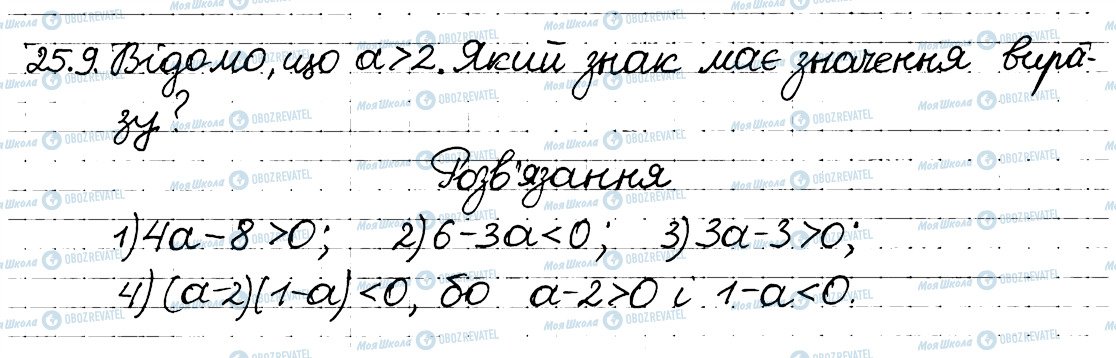 25.9. Відомо, що a>2. Який знак має значення вира-
зу?
Розв'язання
1) 4a-8>0; 2) 6-3a<0; 3) 3a-3>0;
4) (a-2)(1-a)<0, бо a-2>0 і 1-a<0.